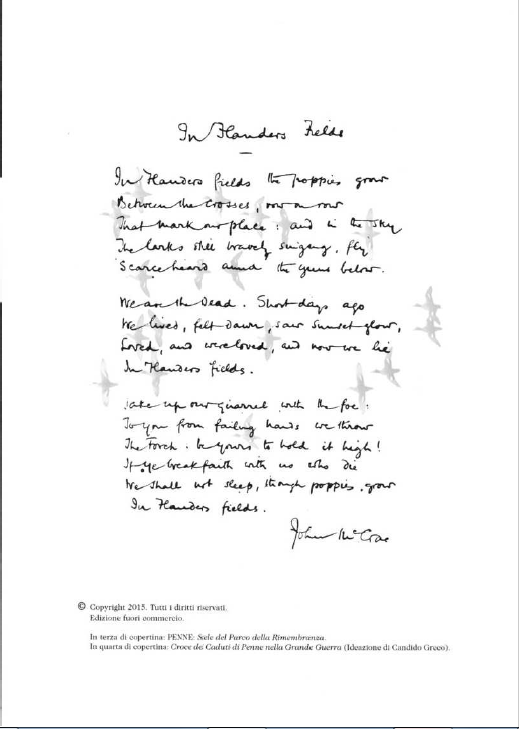 In Flanders Fields
In Flanders fields the poppies grow
Between the crosses, row on row
That mark our place : and in the sky
The larks still bravely singing, fly
Scarce heard amid the guns below.
We are the Dead. Short days ago
We lived, felt dawn, saw sunset glow,
Loved, and were loved, and now we lie
In Flanders fields.
Take up our quarrel with the foe :
To you from failing hands we throw
The Torch. be yours to hold it high!
If ye break faith with us who die
We shall not sleep, though poppies grow
In Flanders fields.
John McCrae
© Copyright 2015. Tutti i diritti riservati.
Edizione fuori commercio.
In terza di copertina: PENNE: Stele del Parco della Rimembranza.
In quarta di copertina: Croce dei Caduti di Penne nella Grande Guerra (Ideazione di Candido Greco).